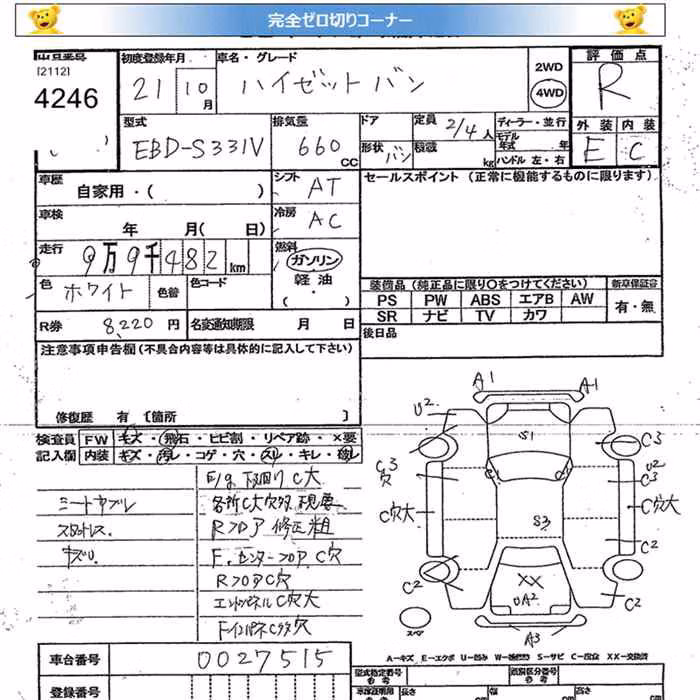 完全ゼロ切りコーナー
初度登録年月 車名・グレード 評価点
[2112]
4246
21 10月 ハイゼットバン 2WD 4WD R
型式 排気量 ドア 定員 2/4人 ディーラー・並行 外装 内装
EBD-S331V 660cc 形状 バン 積載 kg モデル年式 年 ハンドル 左・右 E C
車歴 自家用・( ) シフト AT セールスポイント (正常に機能するものに限ります)
車検 年 月( 日) 冷房 AC
走行 9万9千482km 燃料 ガソリン
軽油
( ・ )
色 ホワイト 色替 色コード
装備品 (純正品に限り○をつけてください) 新車保証書
PS PW ABS エアB AW 有・無
SR ナビ TV カワ
R券 8,220円 名変通知期限 月 日 後日品
注意事項申告欄(不具合内容等は具体的に記入して下さい)
修復歴 有〔箇所 〕
検査員 FW キズ・飛石・ヒビ割・リペア跡・×要
記入欄 内装 キズ・汚レ・コゲ・穴・スレ・キレ・破レ
E/g 下回り C大
各所C大穴多 現車
Rフロア 修正粗
F.センターフロア C穴
RフロアC穴
エンドパネルC穴大
FインパネC多穴
A1 A1
U2 S1 C3
C3 穴 U2 C3
C穴大 S3 C穴大
C2 XX C2
UA2 C2
スペア A3
A−キズ E−エクボ U−凹み S−サビ C−腐食 XX−交換済
車台番号 0027515
型式指定番号 参考 類別区分番号 参考
登録番号 長さ 幅 高さ